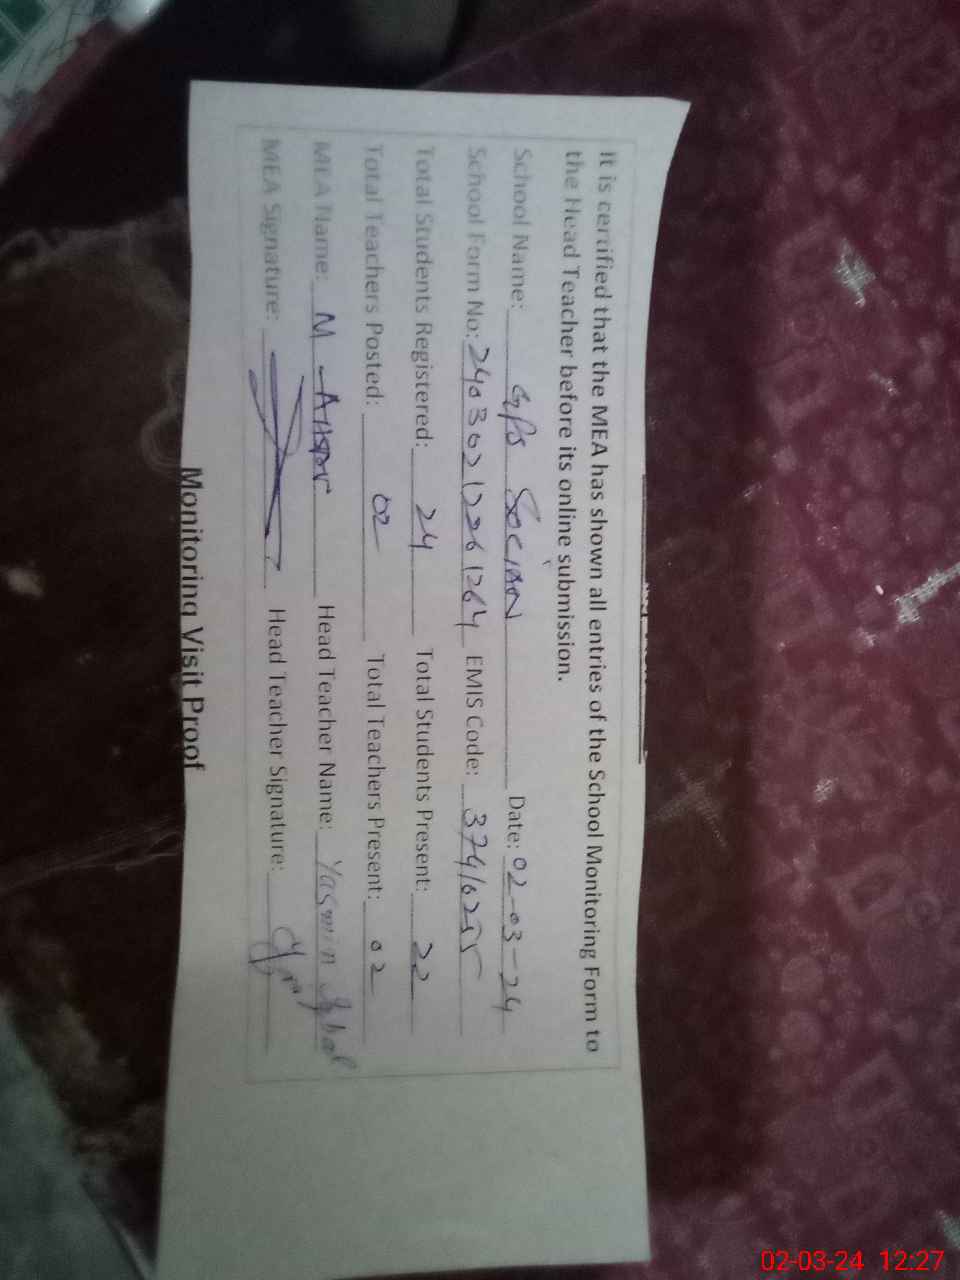 It is certified that the MEA has shown all entries of the School Monitoring Form to
the Head Teacher before its online submission.
School Name: GPS SOCIAN Date: 02-03-24
School Form No: EMIS Code: 37416255
Total Students Registered: 24 Total Students Present: 22
Total Teachers Posted: 02 Total Teachers Present: 02
MEA Name: M Head Teacher Name: Yasmin
MEA Signature: Head Teacher Signature:
Monitoring Visit Proof
02-03-24 12:27